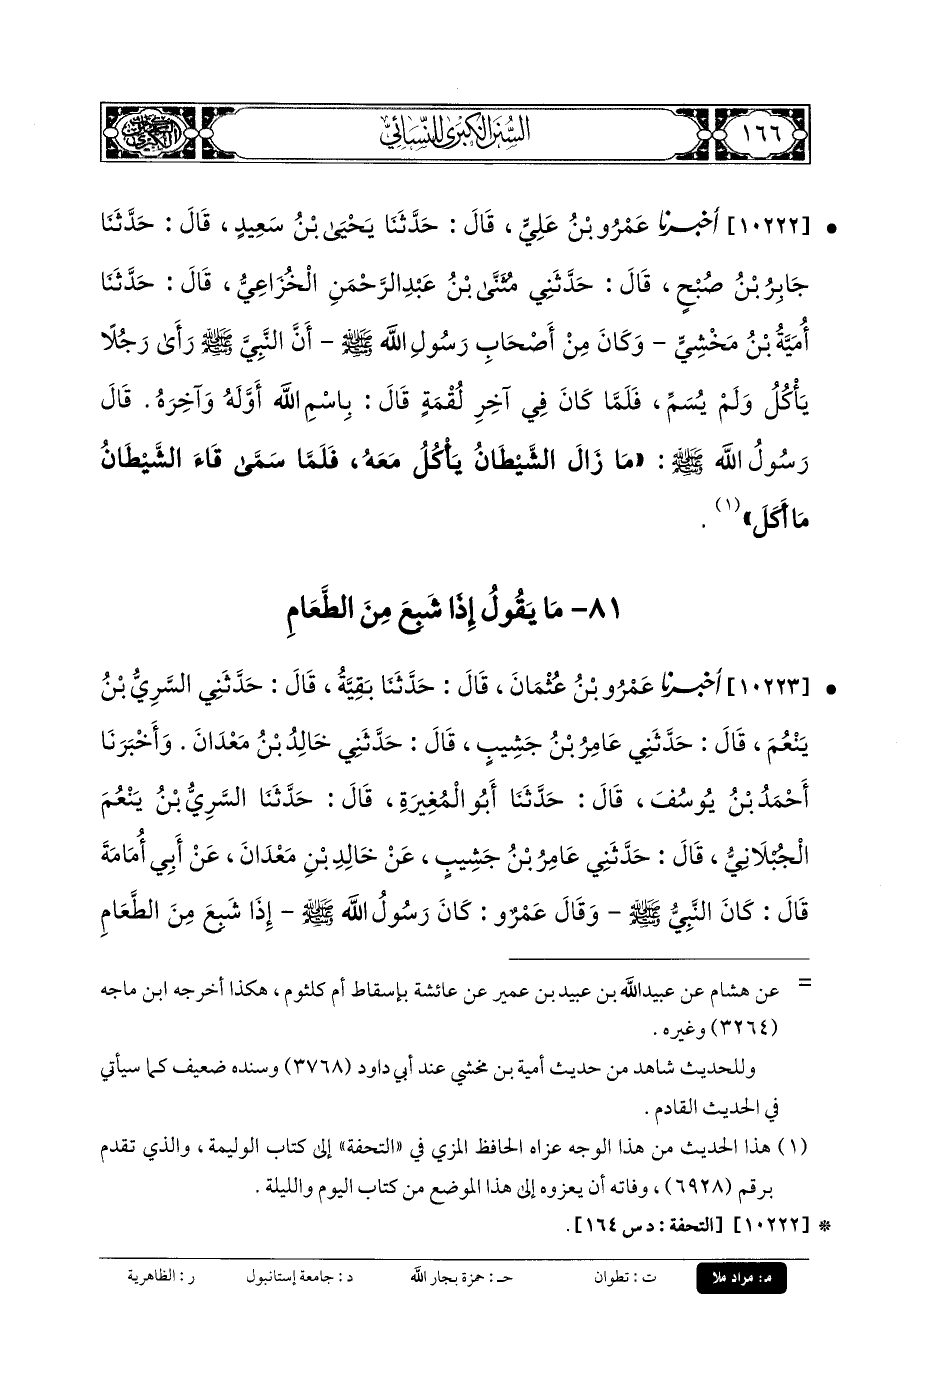 ١٦٦
السُّنَنُ الكِبْرَىٰ لِلنَّسَائِيِّ
• [١٠٢٢٢] أَخْبَرَنَا عَمْرُو بْنُ عَلِيٍّ ، قَالَ : حَدَّثَنَا يَحْيَىٰ بْنُ سَعِيدٍ ، قَالَ : حَدَّثَنَا
جَابِرُ بْنُ صُبْحٍ ، قَالَ : حَدَّثَنِي مُثَنَّىٰ بْنُ عَبْدِالرَّحْمَنِ الْخُزَاعِيُّ ، قَالَ : حَدَّثَنَا
أُمَيَّةُ بْنُ مَخْشِيٍّ - وَكَانَ مِنْ أَصْحَابِ رَسُولِ اللَّه ﷺ - أَنَّ النَّبِيَّ ﷺ رَأَىٰ رَجُلًا
يَأْكُلُ وَلَمْ يُسَمِّ ، فَلَمَّا كَانَ فِي آخِرِ لُقْمَةٍ قَالَ : بِاسْمِ اللَّه أَوَّلَهُ وَآخِرَهُ . قَالَ
رَسُولُ اللَّه ﷺ : «مَا زَالَ الشَّيْطَانُ يَأْكُلُ مَعَهُ، فَلَمَّا سَمَّىٰ قَاءَ الشَّيْطَانُ
مَا أَكَلَ»(١) .
٨١- مَا يَقُولُ إِذَا شَبِعَ مِنَ الطَّعَامِ
• [١٠٢٢٣] أَخْبَرَنَا عَمْرُو بْنُ عُثْمَانَ ، قَالَ : حَدَّثَنَا بَقِيَّةُ ، قَالَ : حَدَّثَنِي السَّرِيُّ بْنُ
يَنْعُمَ ، قَالَ : حَدَّثَنِي عَامِرُ بْنُ جَشِيبٍ ، قَالَ : حَدَّثَنِي خَالِدُ بْنُ مَعْدَانَ . وَأَخْبَرَنَا
أَحْمَدُ بْنُ يُوسُفَ ، قَالَ : حَدَّثَنَا أَبُو الْمُغِيرَةِ ، قَالَ : حَدَّثَنَا السَّرِيُّ بْنُ يَنْعُمَ
الْجُبْلَانِيُّ ، قَالَ : حَدَّثَنِي عَامِرُ بْنُ جَشِيبٍ ، عَنْ خَالِدِ بْنِ مَعْدَانَ ، عَنْ أَبِي أُمَامَةَ
قَالَ : كَانَ النَّبِيُّ ﷺ - وَقَالَ عَمْرٌو : كَانَ رَسُولُ اللَّه ﷺ - إِذَا شَبِعَ مِنَ الطَّعَامِ
= عن هشام عن عبيداللَّه بن عبيد بن عمير عن عائشة بإسقاط أم كلثوم ، هكذا أخرجه ابن ماجه
(٣٢٦٤) وغيره .
وللحديث شاهد من حديث أمية بن مخشي عند أبي داود (٣٧٦٨) وسنده ضعيف كما سيأتي
في الحديث القادم .
(١) هذا الحديث من هذا الوجه عزاه الحافظ المزي في «التحفة» إلى كتاب الوليمة ، والذي تقدم
برقم (٦٩٢٨) ، وفاته أن يعزوه إلى هذا الموضع من كتاب اليوم والليلة .
* [١٠٢٢٢] [التحفة : د س ١٦٤] .
م: مراد ملا ت : تطوان حـ : حمزة بجار اللَّه د : جامعة إستانبول ر : الظاهرية